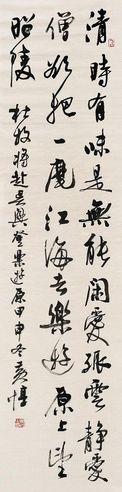 清時有味是無能閑愛孤雲靜愛
僧欲把一麾江海去樂遊原上望
昭陵 杜牧將赴吳興登樂遊原甲申冬黃惇